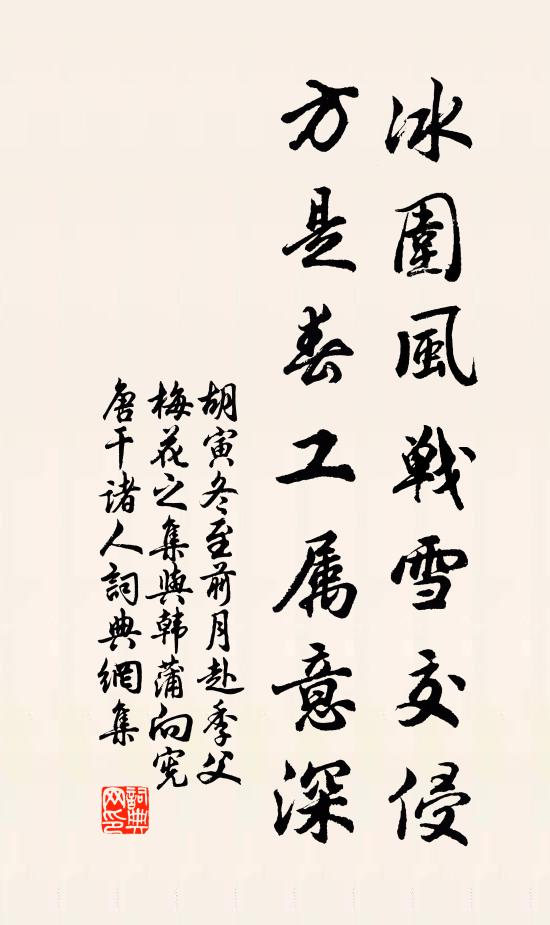 冰圍風戰雪交侵
方是春工属意深
胡寅冬至前月赴季父
梅花之集與韩蒲向憲
唐干諸人詞典網集
詞典网印